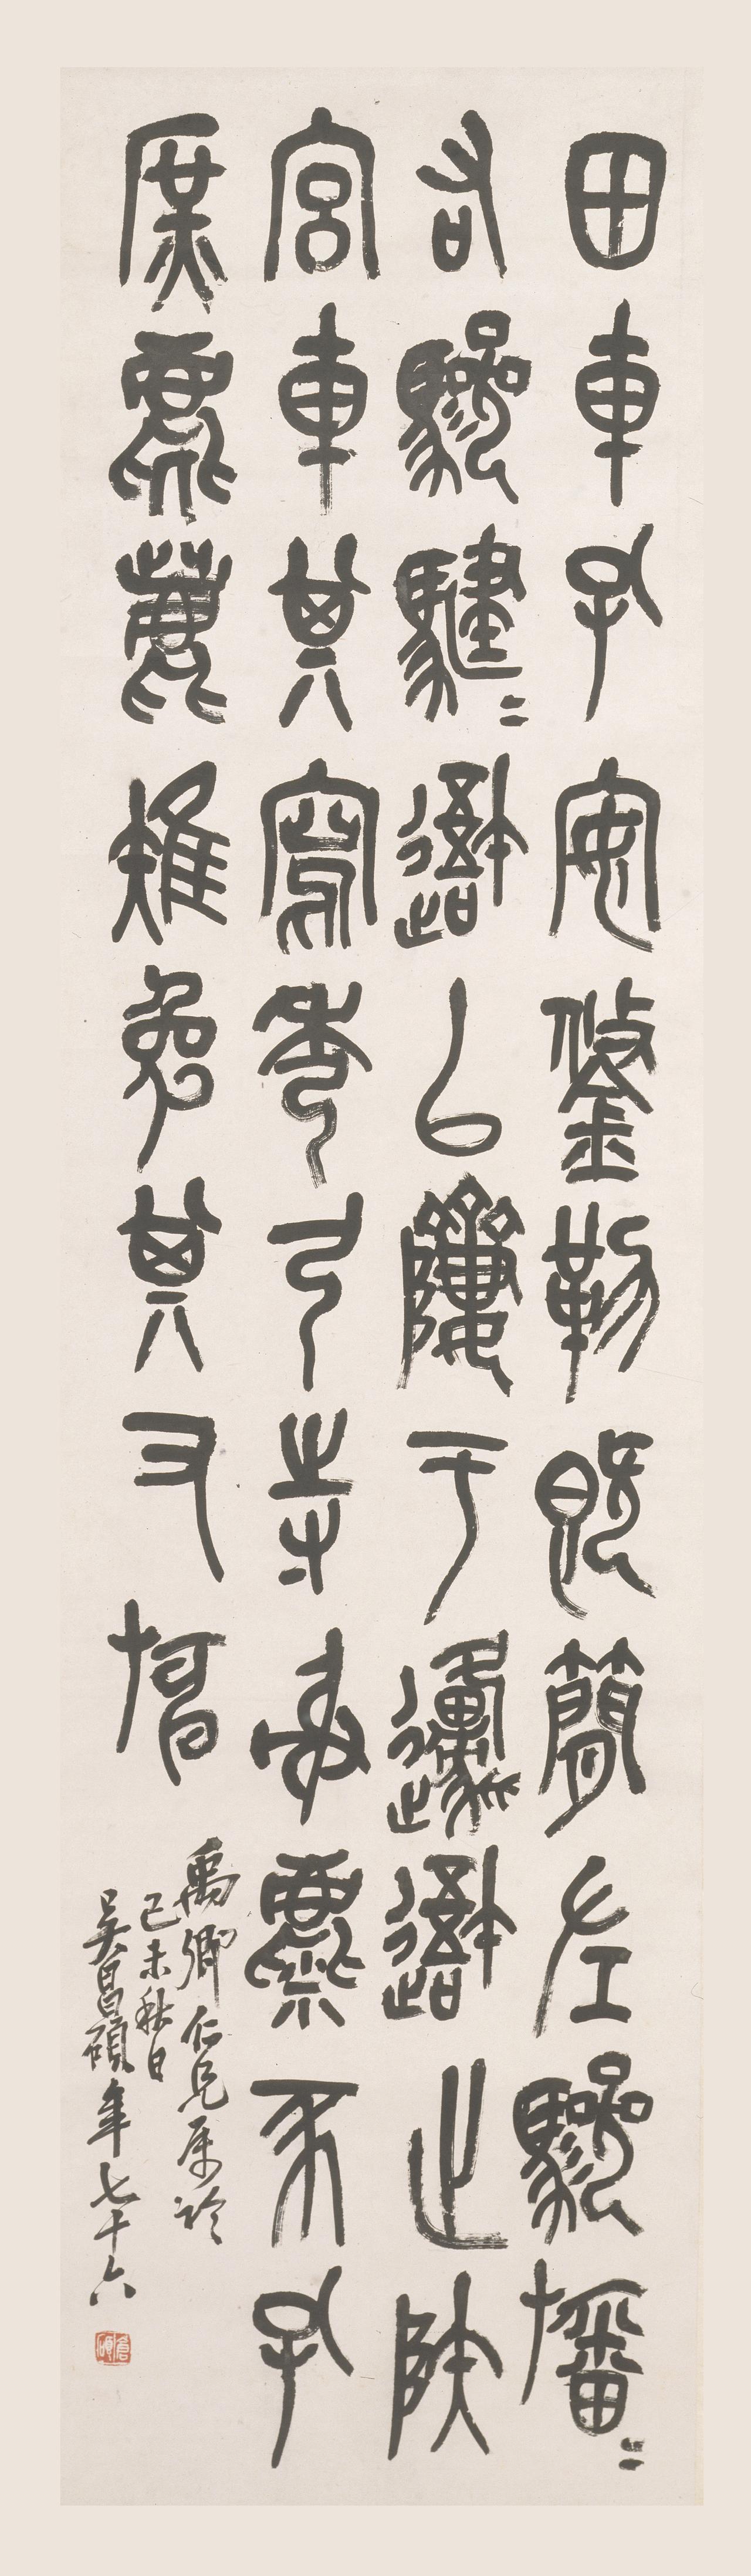 田車孔安鋚勒既簡左驂旛〻
右驂騝〻䢩以隮于邍䢩止陝
宮車其寫秀弓寺射麋豕孔
庶麀鹿雉兔其又旃
禹卿仁兄属
己未秋日
吳昌碩年七十六
倉碩